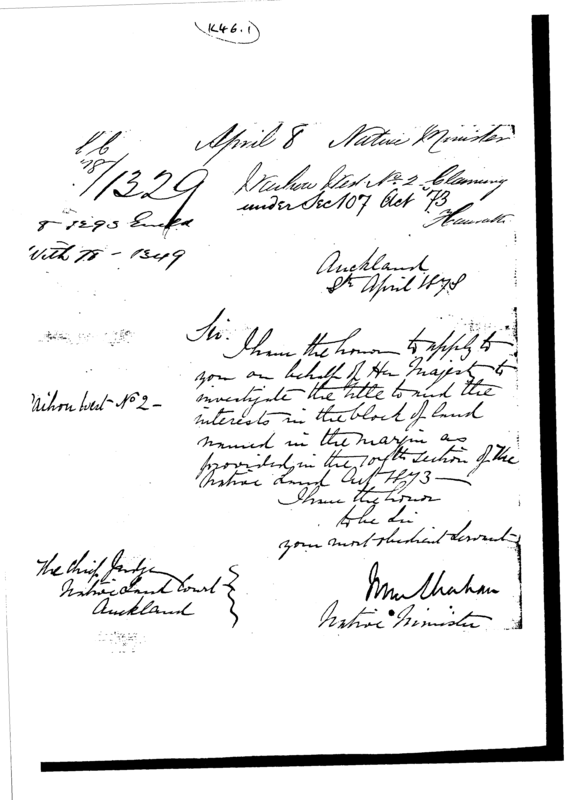 K46.1
April 8 Native Minister
78/1329
Waihou West No 2 Claiming
under Sec 107 Act 73
Hauraki
With 78 - 1349
Auckland
8th April 1878
Sir.
I have the honor to apply to
you on behalf of Her Majesty to
investigate the title to and the
interests in the block of land
named in the margin as
provided in the 107th section of the
Native Land Act 1873 —
aihou West No 2 —
I have the honor
to be Sir
your most obedient Servant
Native Minister
The Chief Judge
Native Land Court
Auckland